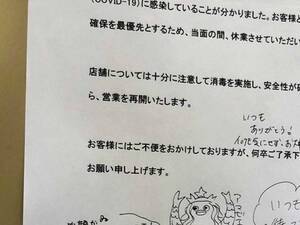 (COVID-19)に感染していることが分かりました。お客様と
確保を最優先とするため、当面の間、休業させていただい
店舗については十分に注意して消毒を実施し、安全性が確
ら、営業を再開いたします。
いつも
ありがとう!
何も気にせず、お大
お客様にはご不便をおかけしておりますが、何卒ご了承下
お願い申し上げます。
アマビエ
いつも
待っ
笑顔が